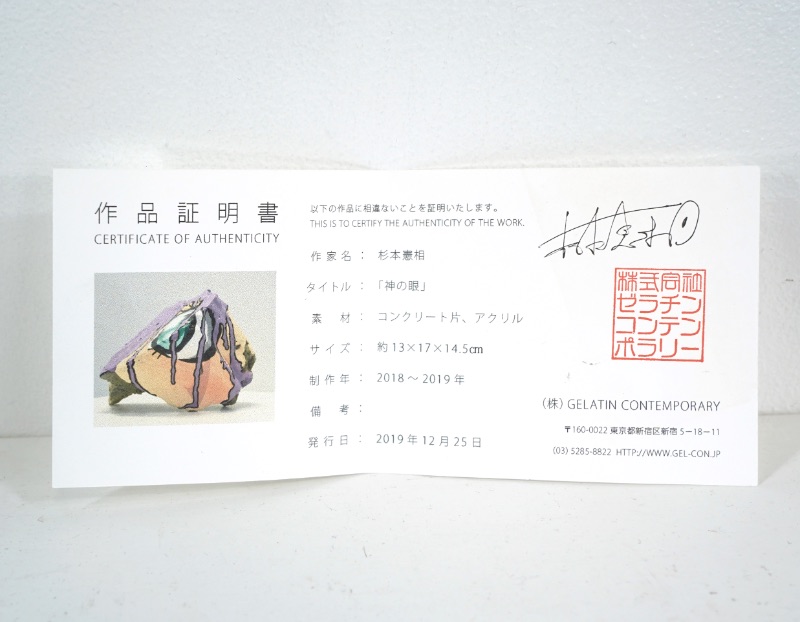 作品証明書
CERTIFICATE OF AUTHENTICITY
以下の作品に相違ないことを証明いたします。
THIS IS TO CERTIFY THE AUTHENTICITY OF THE WORK.
作家名：杉本憲相
タイトル：「神の眼」
素材：コンクリート片、アクリル
サイズ：約13×17×14.5㎝
制作年：2018～2019年
備考：
発行日：2019年12月25日
株式会社
ゼラチン
コンテン
ポラリー
（株）GELATIN CONTEMPORARY
〒160-0022 東京都新宿区新宿5－18－11
（03）5285-8822 HTTP://WWW.GEL-CON.JP